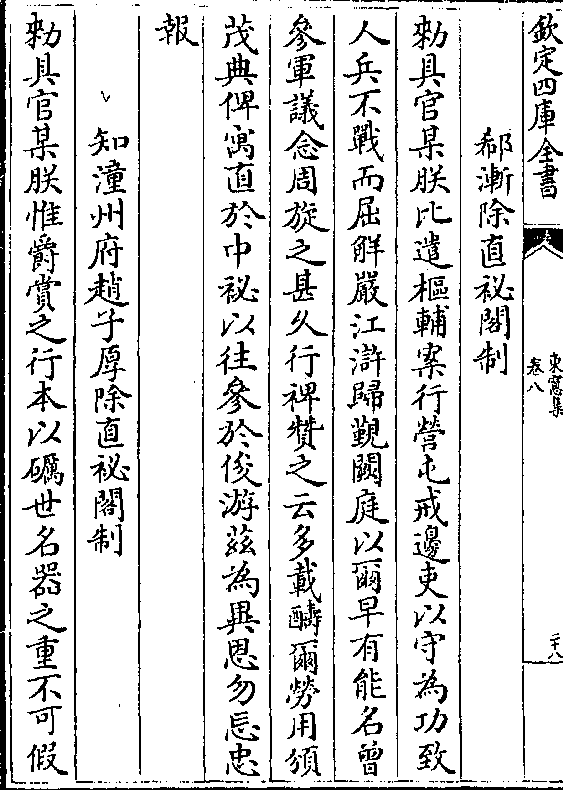 欽定四庫全書
東窻集
卷八
二十八
郗漸除直祕閣制
勑具官某朕比遣樞輔案行營屯戒邊吏以守為功致
人兵不戰而屈解嚴江滸歸覲闕庭以爾早有能名曾
參軍議念周旋之甚久行裨賛之云多載酬爾勞用頒
茂典俾寓直於中祕以往參於俊游兹為異恩勿忘忠
報
知潼州府趙子厚除直祕閣制
勑具官某朕惟爵賞之行本以礪世名器之重不可假